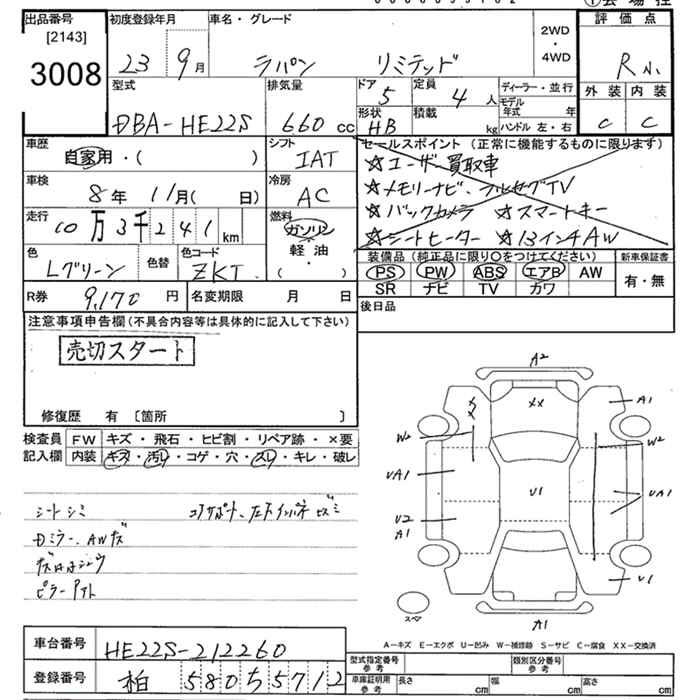 出品番号 初度登録年月 車名・グレード 2WD・4WD 評価点
[2143]
3008 23 9月 ラパン リミテッド R
型式 排気量 ドア 5 定員 4人 ディーラー・並行 外装 内装
DBA-HE22S 660cc 形状 HB 積載 kg モデル年式 年 C C
ハンドル 左・右
車歴 自家用・( ) シフト IAT セールスポイント (正常に機能するものに限ります)
☆ユーザー買取車
車検 8年 11月( 日) 冷房 AC ☆メモリーナビ、フルセグTV
走行 10万3千241km 燃料 ガソリン・軽油・( ) ☆バックカメラ ☆スマートキー
☆シートヒーター ☆13インチAW
色 Lグリーン 色替 色コード ZKT 装備品(純正品に限り○をつけてください) 新車保証書
PS PW ABS エアB AW 有・無
SR ナビ TV カワ
R券 9,170円 名変期限 月 日 後日品
注意事項申告欄(不具合内容等は具体的に記入して下さい)
売切スタート
修復歴 有 〔箇所 〕
検査員記入欄 FW キズ・飛石・ヒビ割・リペア跡・×要
内装 キズ・汚レ・コゲ・穴・スレ・キレ・破レ
シートシミ コアサポート、左右インパネ
Dミラー、AWキズ
ピラー
A2
XX A1
XX
W2 W2
UA1 U1 UA1
U2
A1
U1
スペア A1
A-キズ E-エクボ U-凹み W-補修跡 S-サビ C-腐食 XX-交換済
車台番号 HE22S-212260 型式指定番号 参考 類別区分番号 参考
登録番号 柏 580 5712 車庫証明用 参考 長さ cm 幅 cm 高さ cm